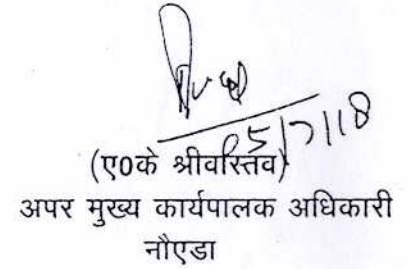 05/7/18
(ए0के श्रीवास्तव)
अपर मुख्य कार्यपालक अधिकारी
नौएडा